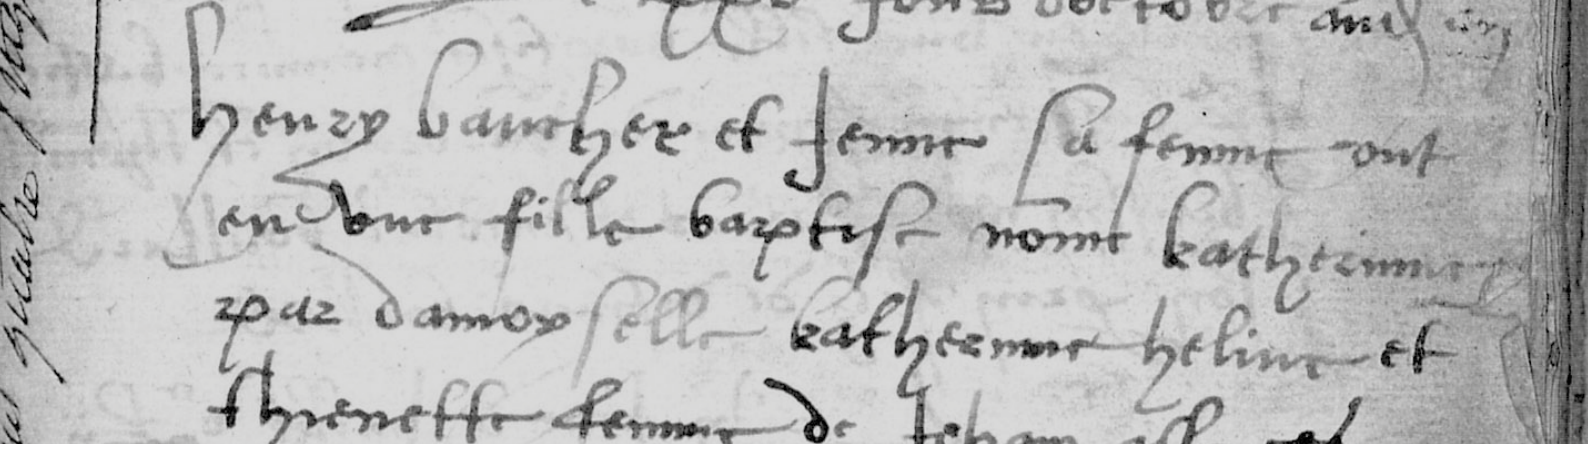 jour doctobre
henry baucher et Jenne sa femme ont
eu une fille baptise nōme katherinne
par damoyselle katherinne heline et
thienette femme de Jehan